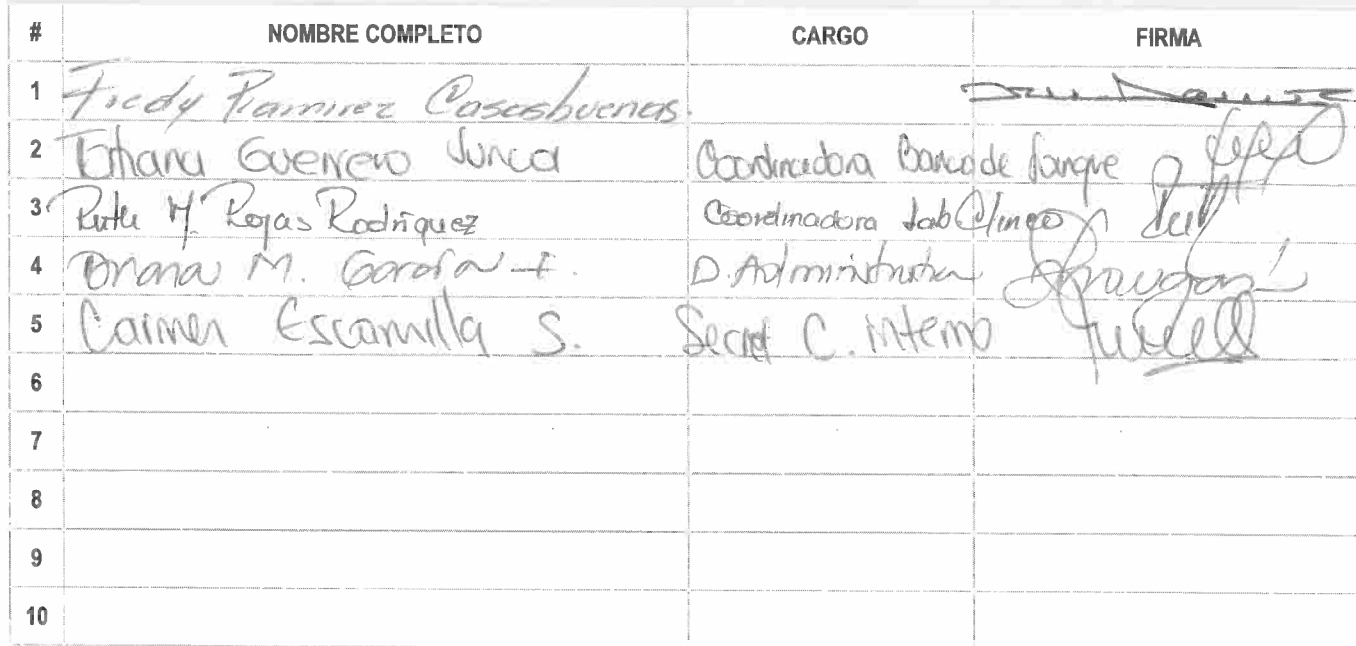 # NOMBRE COMPLETO CARGO FIRMA
1 Fredy Ramirez Casasbuenas.
2 Tatiana Guerrero Junca Coordinadora Banco de Sangre
3 Ruth M. Rojas Rodriguez Coordinadora Lab Clinico
4 M. García D. Administrativa
5 Carmen Escamilla S. Secret C. interno
6
7
8
9
10